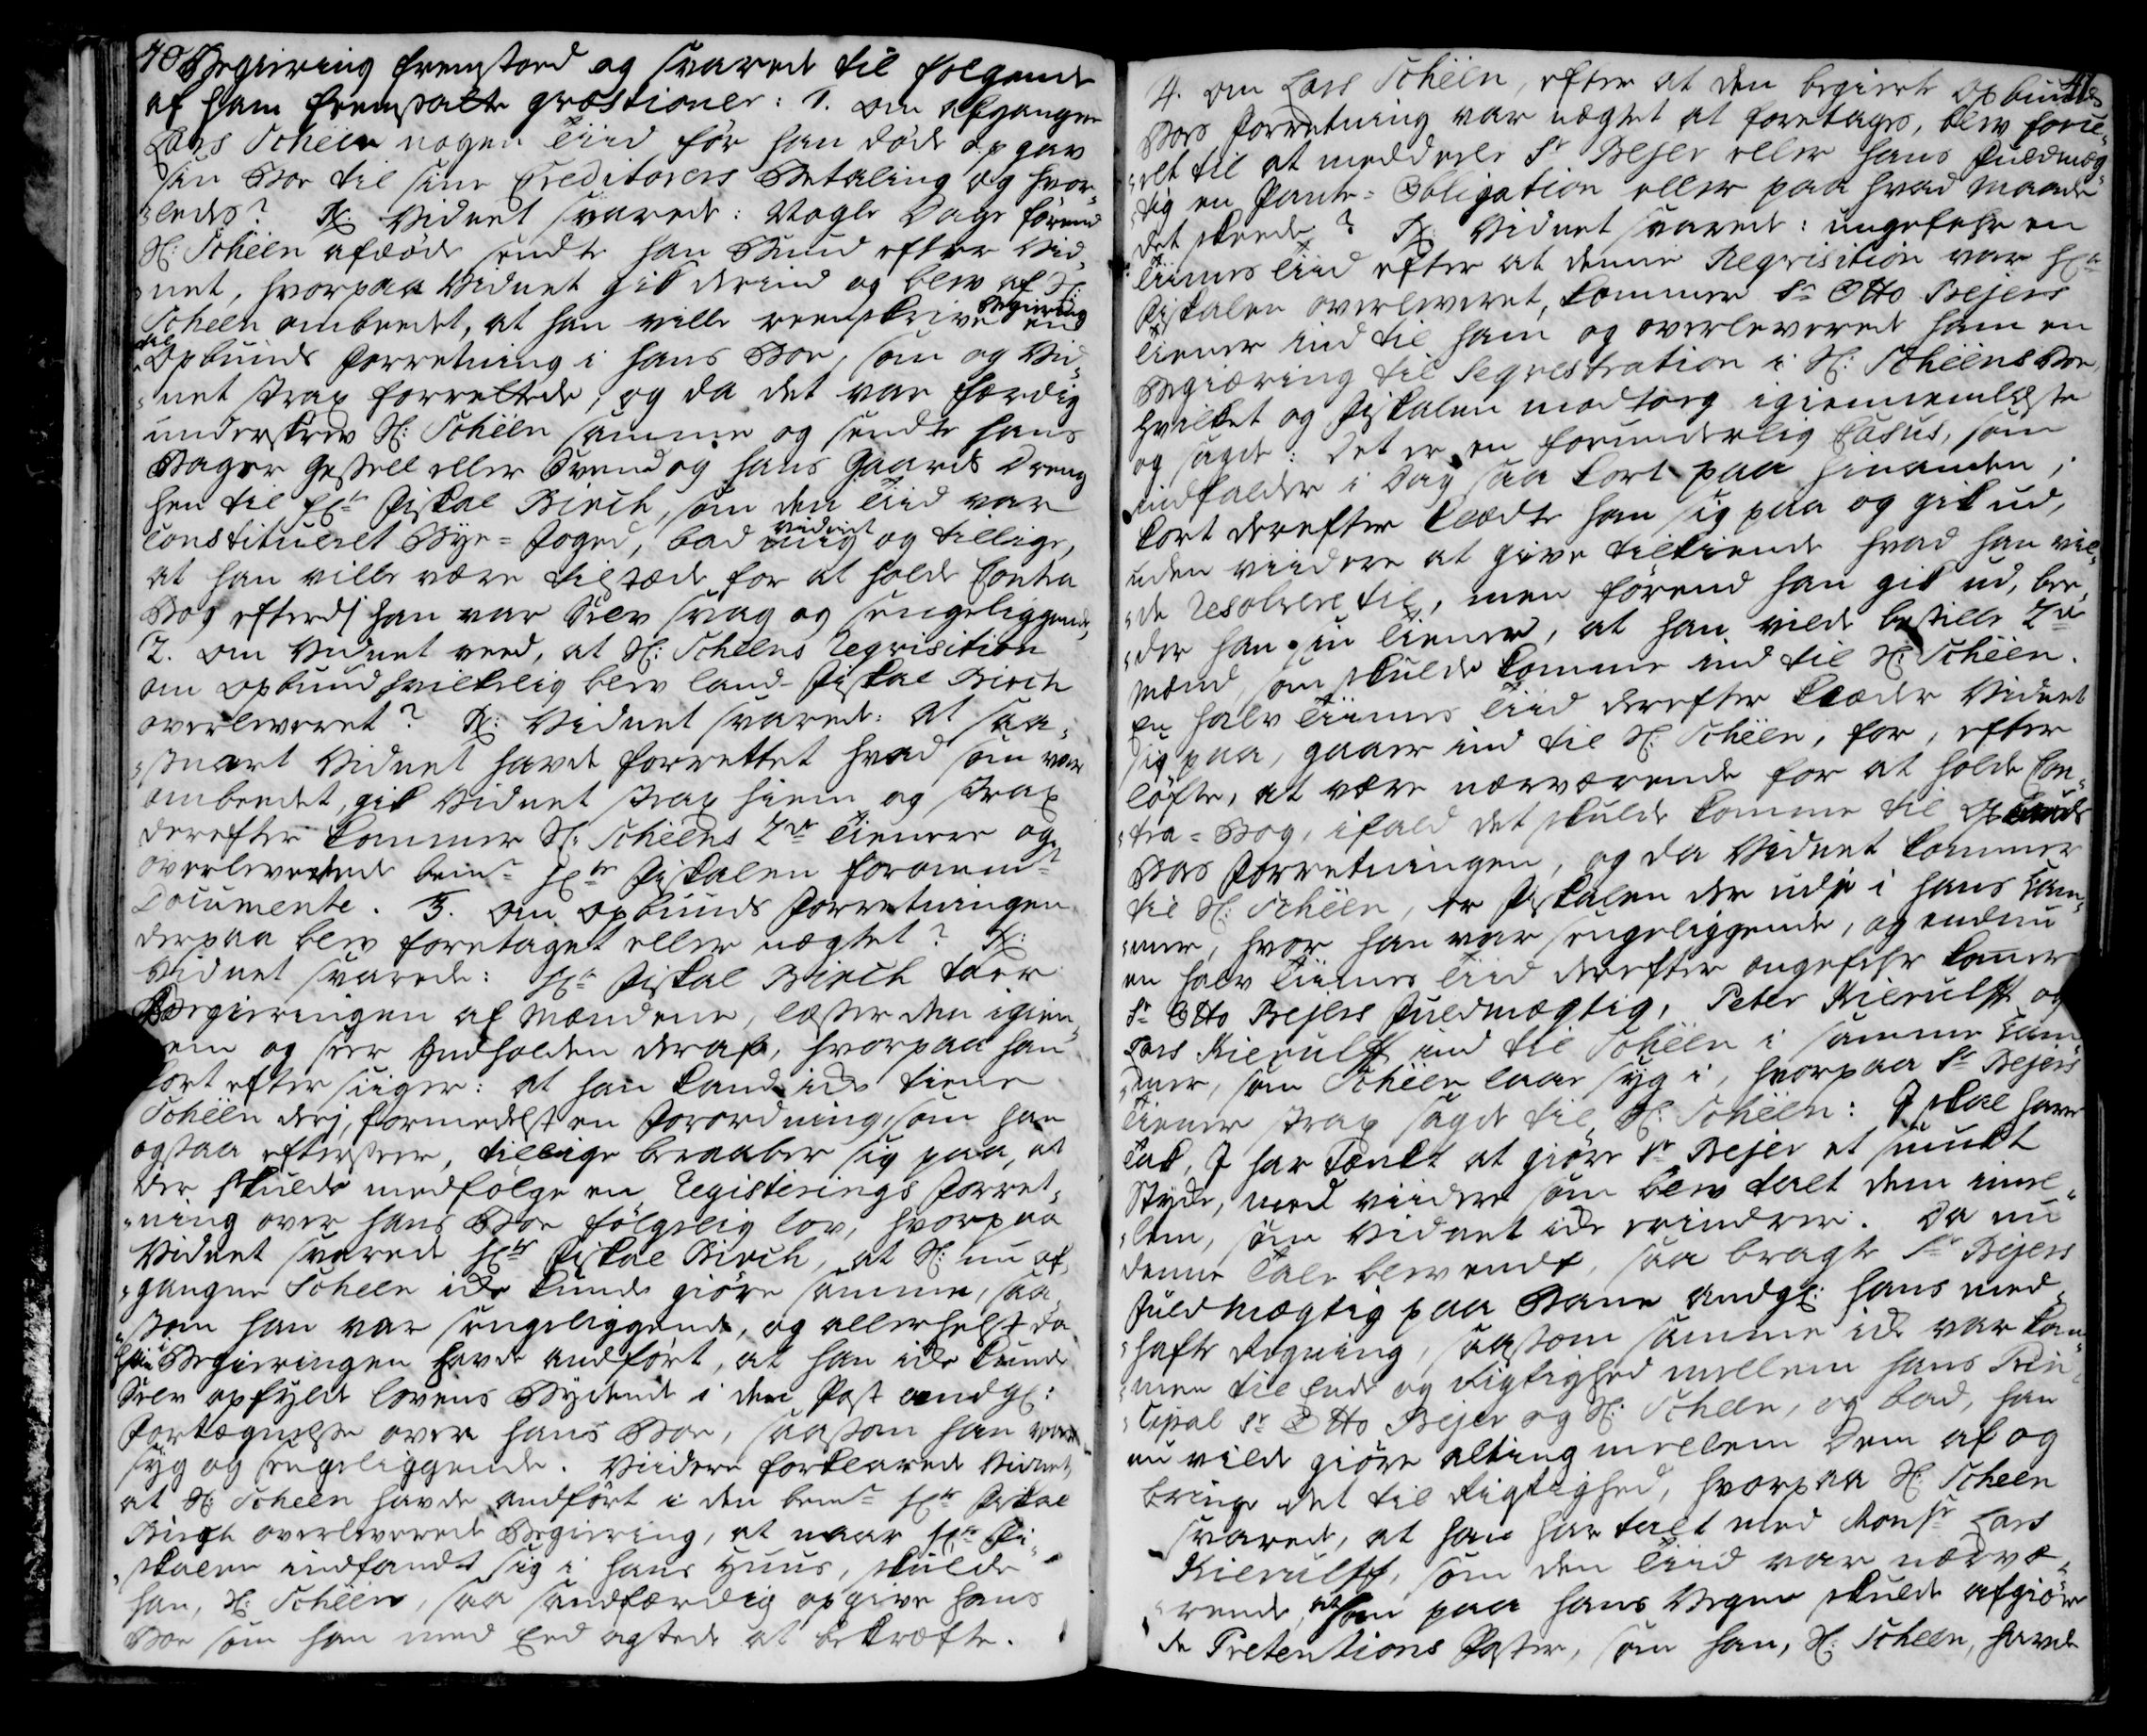 40
Begiering fremstoed og svarede til følgende
af ham fremsatte qvæstioner: 1. om afgangne
Lars Schëen nogen Tiid før han døde opgav
sin Boe til sine Creditorers Betaling og hvor-
ledes? Rx. Vidnet svarede: Nogle Dage førend
Sl: Schëen afdøde sendte han Bud efter Vid-
net, hvorpaa Vidnet gik derind og blev af Sl:
Schëen ombedet, at han ville reenskrive Begiering
til Opbuds Forretning i hans Boe, som og Vid-
net strax forrettede, og da det var færdig
underskrev Sl: Schëen samme og sendte hans
Bager Gesell eller Svend og hans Gaards Dreng
hen til Hr. Fiskal Birch, som den Tiid var
Constitueret Bye-Foged, bad vidnet og tillige,
at han ville være tilstæde for at holde Contra
Bog efterdj han var selv svag og sengeliggende,
2. om Vidnet veed, at Sl: Schëens Reqvisition
om Opbud skriftlig blev land-Fiskal Birch
overleveret? Rx: Vidnet svarede: at saa-
snart Vidnet havde forrettet hvad som var
ombedet, gik Vidnet strax hiem og strax
derefter kommer Sl: Schëens 2de Tienere og
overleverede bemte Hr. Fiskalen forommte
Documente. 3. om Opbuds Forretningen
derpaa blev foretaget eller nægtet? Rx:
Vidnet svarede: Hr. Fiskal Birch taer
Begieringen af Mændene, læser den igien-
nem og seer Indholden deraf, hvorpaa han
kort efter siiger: at han kand ikke tiene
Schëen derj, formedelst en Forordning, som han
ogsaa efterseer, tillige beraaber sig paa, at
der skulde medfølge en Registerings Forret-
ning over hans Boe følgelig lov, hvorpaa
Vidnet svarede Hr. Fiskal Birch, at Sl: nu af-
gangne Schëen ikke kunde giøre samme, saa-
som han var sengeliggende, og allerhelst da
han i Begieringen havde andført, at han ikke kunde
selv opfylde lovens Bydende i den Post andg:
Fortegnelse over hans Boe, saasom han var
syg og sengeliggende. Viidere forklarede Vidnet,
at Sl: Schëen havde andført i den bemte Hr. Fiskal
Birch overleverede Begiering, at naar Hr. Fi-
skalen indfandt sig i hans Huus, skulde
han, Sl: Schëen, saa sandfærdig opgive hans
Boe som han med Eed agtede at bekræfte.
41
4. om Lars Schëen, efter at den begierte Opbuds
Boes Forretning var nægtet at foretages, blev
til at meddeele Sr. Bejer eller hans Fuldmæg-
tig en Pante-Obligation eller paa hvad Maade
det skeede? Rx: Vidnet svarede: ungefehr en
Tiimes Tiid efter at denne Reqvisition var Hr.
Fiskalen overleveret, kommer Sr. Otto Bejers
Tiener ind til ham og overleverede ham en
Begiæring til Seqvestration i Sl: Schëens Boe,
hvilket og Fiskalen modtog igiennemlæste
og sagde: det er en forunderlig Casus, som
indfalder i Dag saa kort paa hinanden,
kort derefter klædte han sig paa og gik ud,
uden viidere at give tilkiende hvad han vil-
de resolvere til, men førend han gik ud, bee-
der han sin Tiener, at han vilde bestille 2de
Mænd, som skulde komme ind til Sl: Schëen.
En halv Tiimes Tiid derefter klæder Vidnet
sig paa, gaaer ind til Sl: Schëen, for, efter
løfte, at være nærværende for at holde Con-
tra-Bog, ifald det skulde komme til Opbuds
Boes Forretningen, og da Vidnet kommer
til Sl: Schëen, er Fiskalen der inde i hans Kam-
mer, hvor han var sengeliggende, og endnu
en halv Tiimes Tiid derefter ongefehr kommer
Sr. Otto Bejers Fuldmægtig, Peter Kierulff og
Lars Kierulff ind til Schëen i samme Kam-
mer, som Schëen laae syg i, hvorpaa Sr. Bejers
Tiener strax sagde til Sl: Schëen: I skal have
Tak, I har tænkt at giøre Sr. Bejer et smukt
Støkke, med viidere som blev talt dem imel-
lem, som Vidnet ikke erindrer. Da nu
denne Tale blev endt, saa bragte Sr. Bejers
Fuldmægtig paa Bane andg: hans med-
hafte Regning, saasom samme ikke var kom-
men til Ende og Rigtighed mellem hans Prin-
cipal Sr. Otto Bejer og Sl: Schëen, og bad, han
nu vilde giøre alting mellem dem af og
bringe det til Rigtighed, hvorpaa Sl: Schëen
svarede, at han har talt med Monsr. Lars
Kierulff, som den Tiid var nærvæ-
rende, at han paa hans Vegne skulde afgiøre
de Pretentions Poster, som han, Sl: Schëen, havde